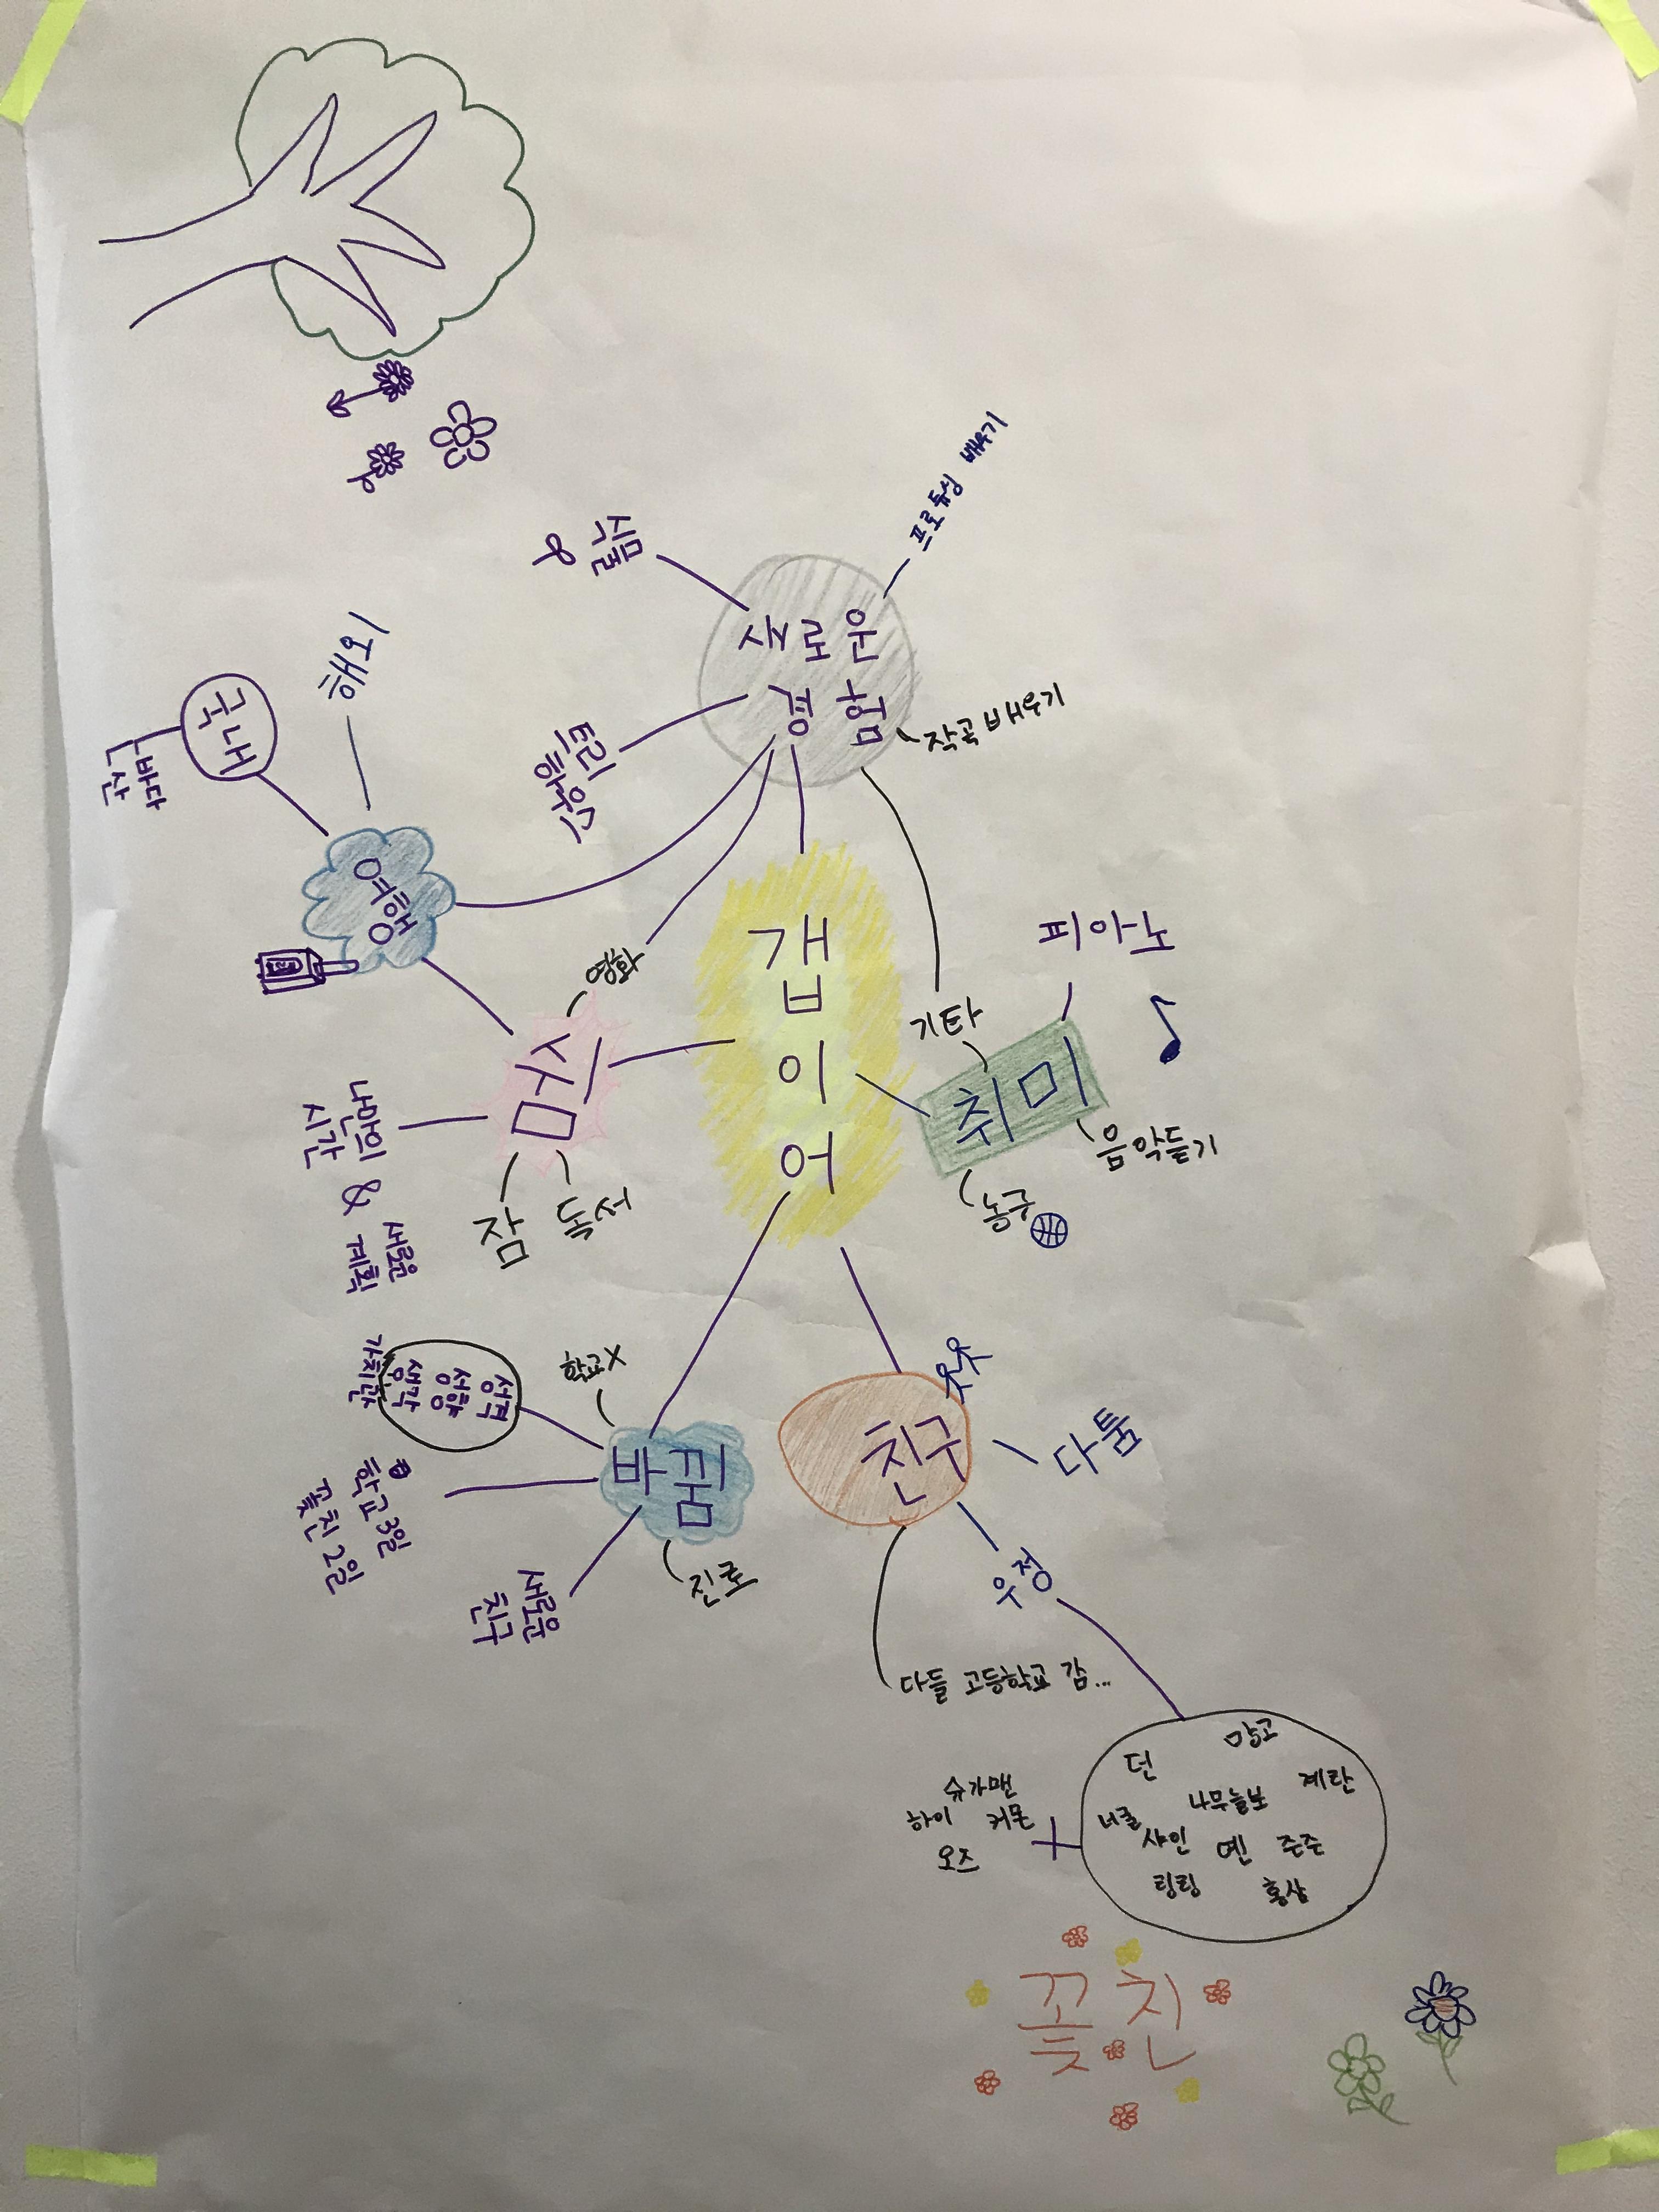 프로듀싱 배우기
식물
새로운
경험
작곡 배우기
트리
하우스
1해흥
국내
바다
산
여행
영화
갭이어
피아노
기타
취미
음악듣기
농구
쉼
나만의
시간
&
새로운
계획
잠
독서
학교X
성격
성향
생각
가치관
바뀜
학교 3일
꽃친 2일
새로운
친구
진로
친구
다툼
우정
다들 고등학교 감...
망고
던
계란
나무늘보
너굴
샤인
옌
쥰쥰
팅팅
홍삼
슈가맨
하이
커몬
오즈
꽃친